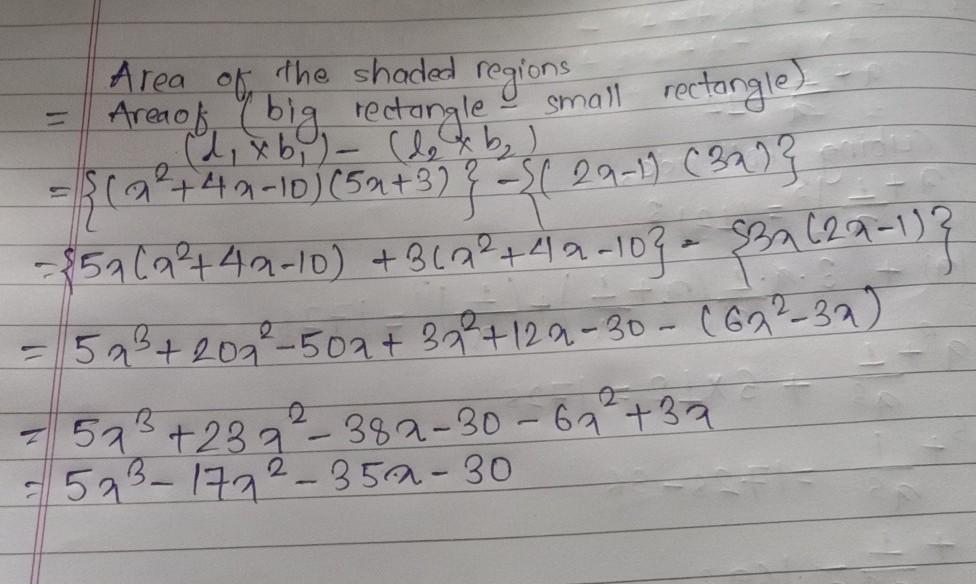 Area of the shaded regions
= Area of (big rectangle - small rectangle)
(l₁ × b₁) - (l₂ × b₂)
= {(x²+4x-10)(5x+3)} - {(2x-1) (3x)}
= {5x(x²+4x-10) + 3(x²+4x-10} - {3x(2x-1)}
= 5x³+20x²-50x+ 3x²+12x-30 - (6x²-3x)
= 5x³+23x²-38x-30-6x²+3x
= 5x³-17x²-35x-30